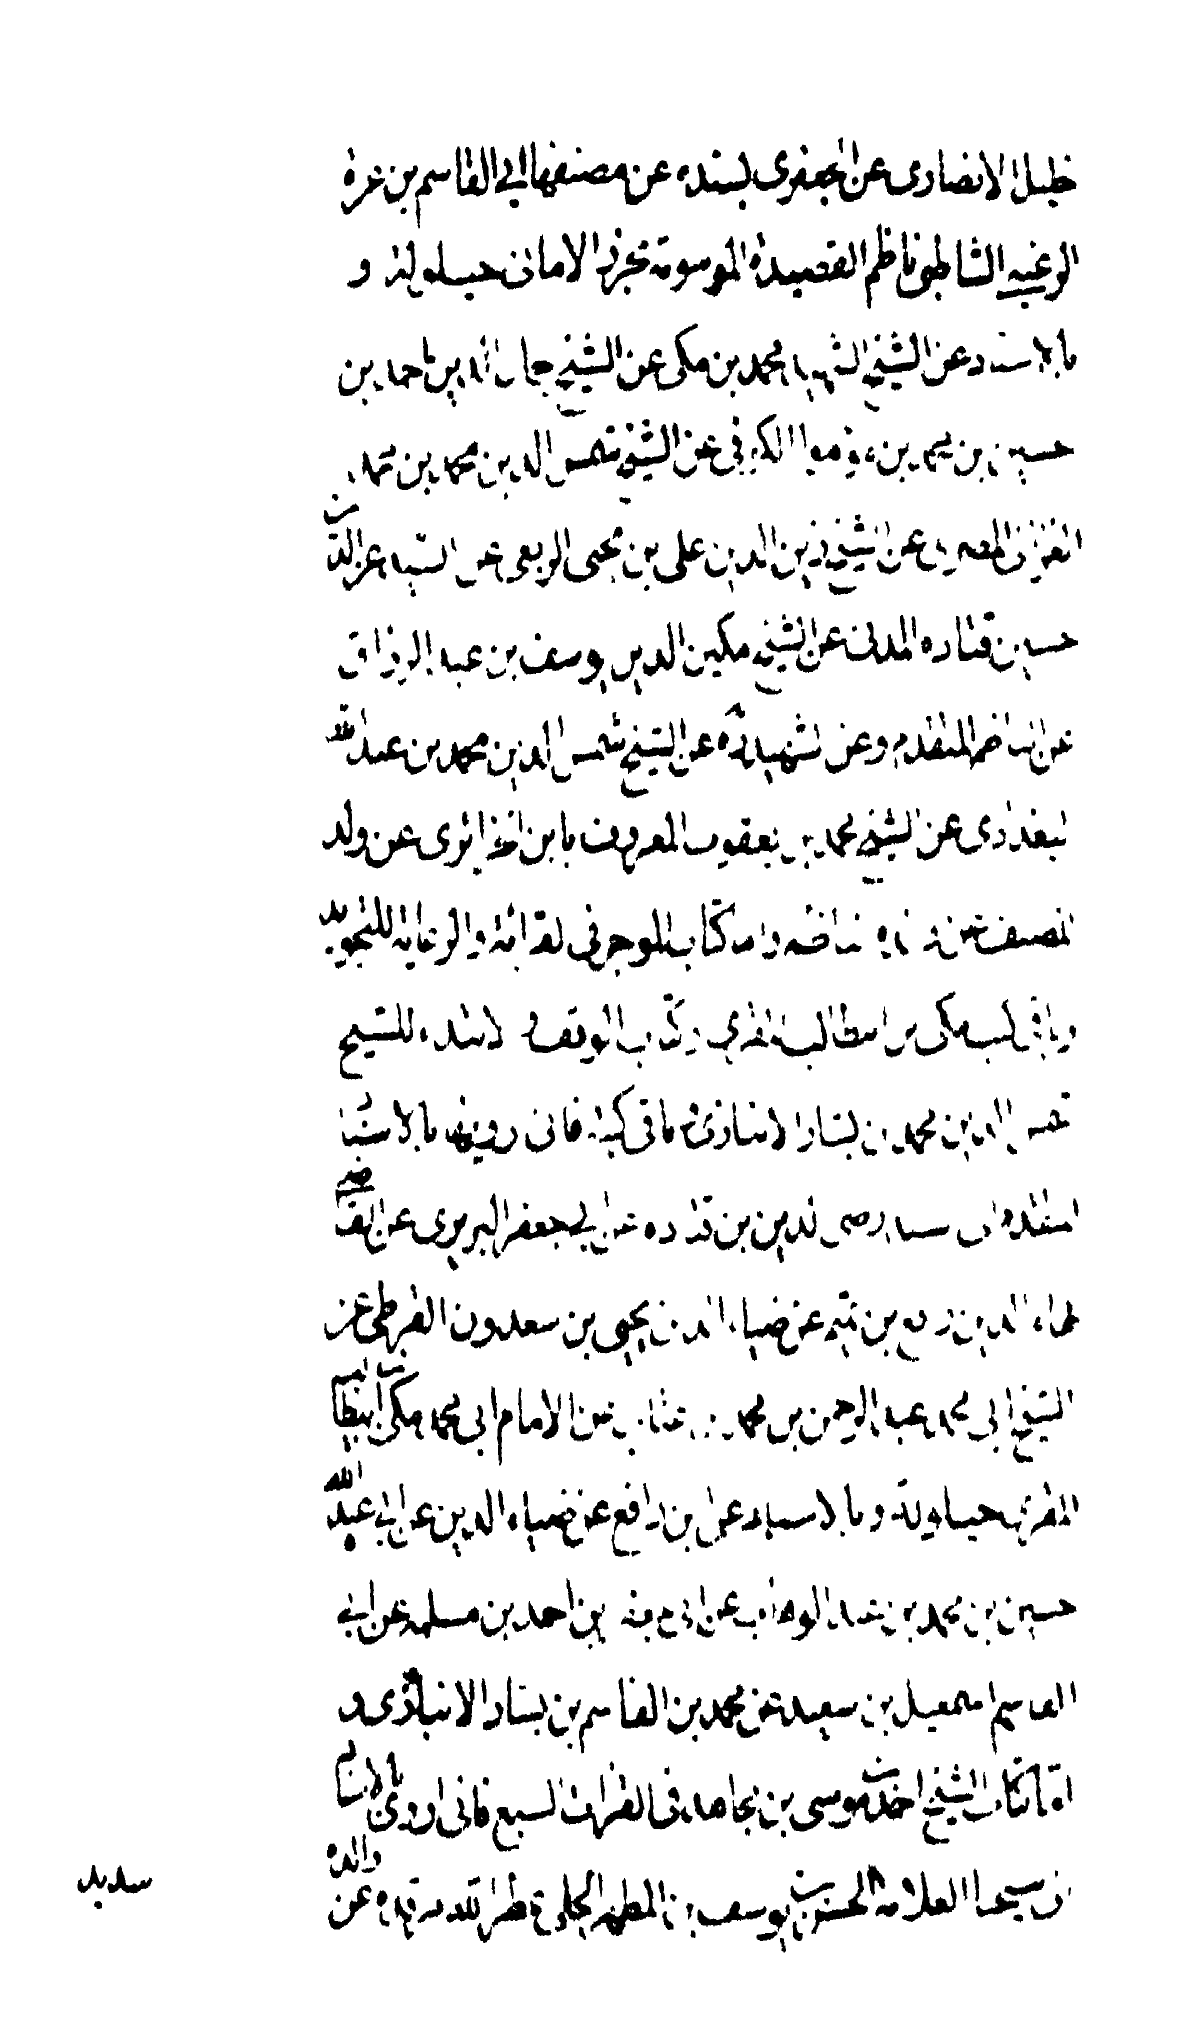 خليل الانصاري عن الجعفري بسنده عن مصنفها ابي القاسم بن غره
الرعيني الشاطبي ناظم القصيدة الموسومة بحرز الاماني حيلولة و
بالاسناد عن الشيخ الشهيد محمد بن مكي عن الشيخ جمال الدين احمد بن
حسين بن محمد بن الكوفي عن الشيخ شمس الدين محمد بن محمد
المصري عن الشيخ زين الدين علي بن يحيى الربعي عن السيد عز الدين
حسين قتاده المدني عن الشيخ مكين الدين يوسف بن عبد الرزاق
عن الناظم المتقدم وعن الشهيد ره عن الشيخ شمس الدين محمد بن عبد الله
البغدادي عن الشيخ محمد بن يعقوب المعروف بابن الجزائري عن ولد
المصنف عن والده الناظم واما كتاب الموجز في القرائة والرعاية للتجويد
وباقي كتب مكي بن ابيطالب المقري وكتاب الوقف و الابتداء للشيخ
شمس الدين محمد بن بشار الانباري وباقي كتبه فاني رويتها بالاسناد
المتقدم الى السيد رضي الدين بن قتاده عن ابي جعفر البربري عن القاضي
بهاء الدين رافع بن تميم عن ضياء الدين يحيى بن سعدون القرطبي عن
الشيخ ابي محمد عبد الرحمن بن محمد بن عتاب عن الامام ابي محمد مكي ابن ابيطالب
المقري حيلولة وبالاسناد عن ابن رافع عن ضياء الدين عن ابي عبد الله
حسين بن محمد بن عبد الوهاب عن ابي جعفر بن احمد بن مسلمه عن ابي
القاسم اسمعيل بن سعيد عن محمد بن القاسم بن بشار الانباري و
اما كتاب الشيخ احمد بن موسى بن مجاهد في القراات السبع فاني اروي بالاسناد الى
شيخنا العلامة الحسن بن يوسف بن المطهر الحلي طهر الله رمسه وقدس عن والده
سديد